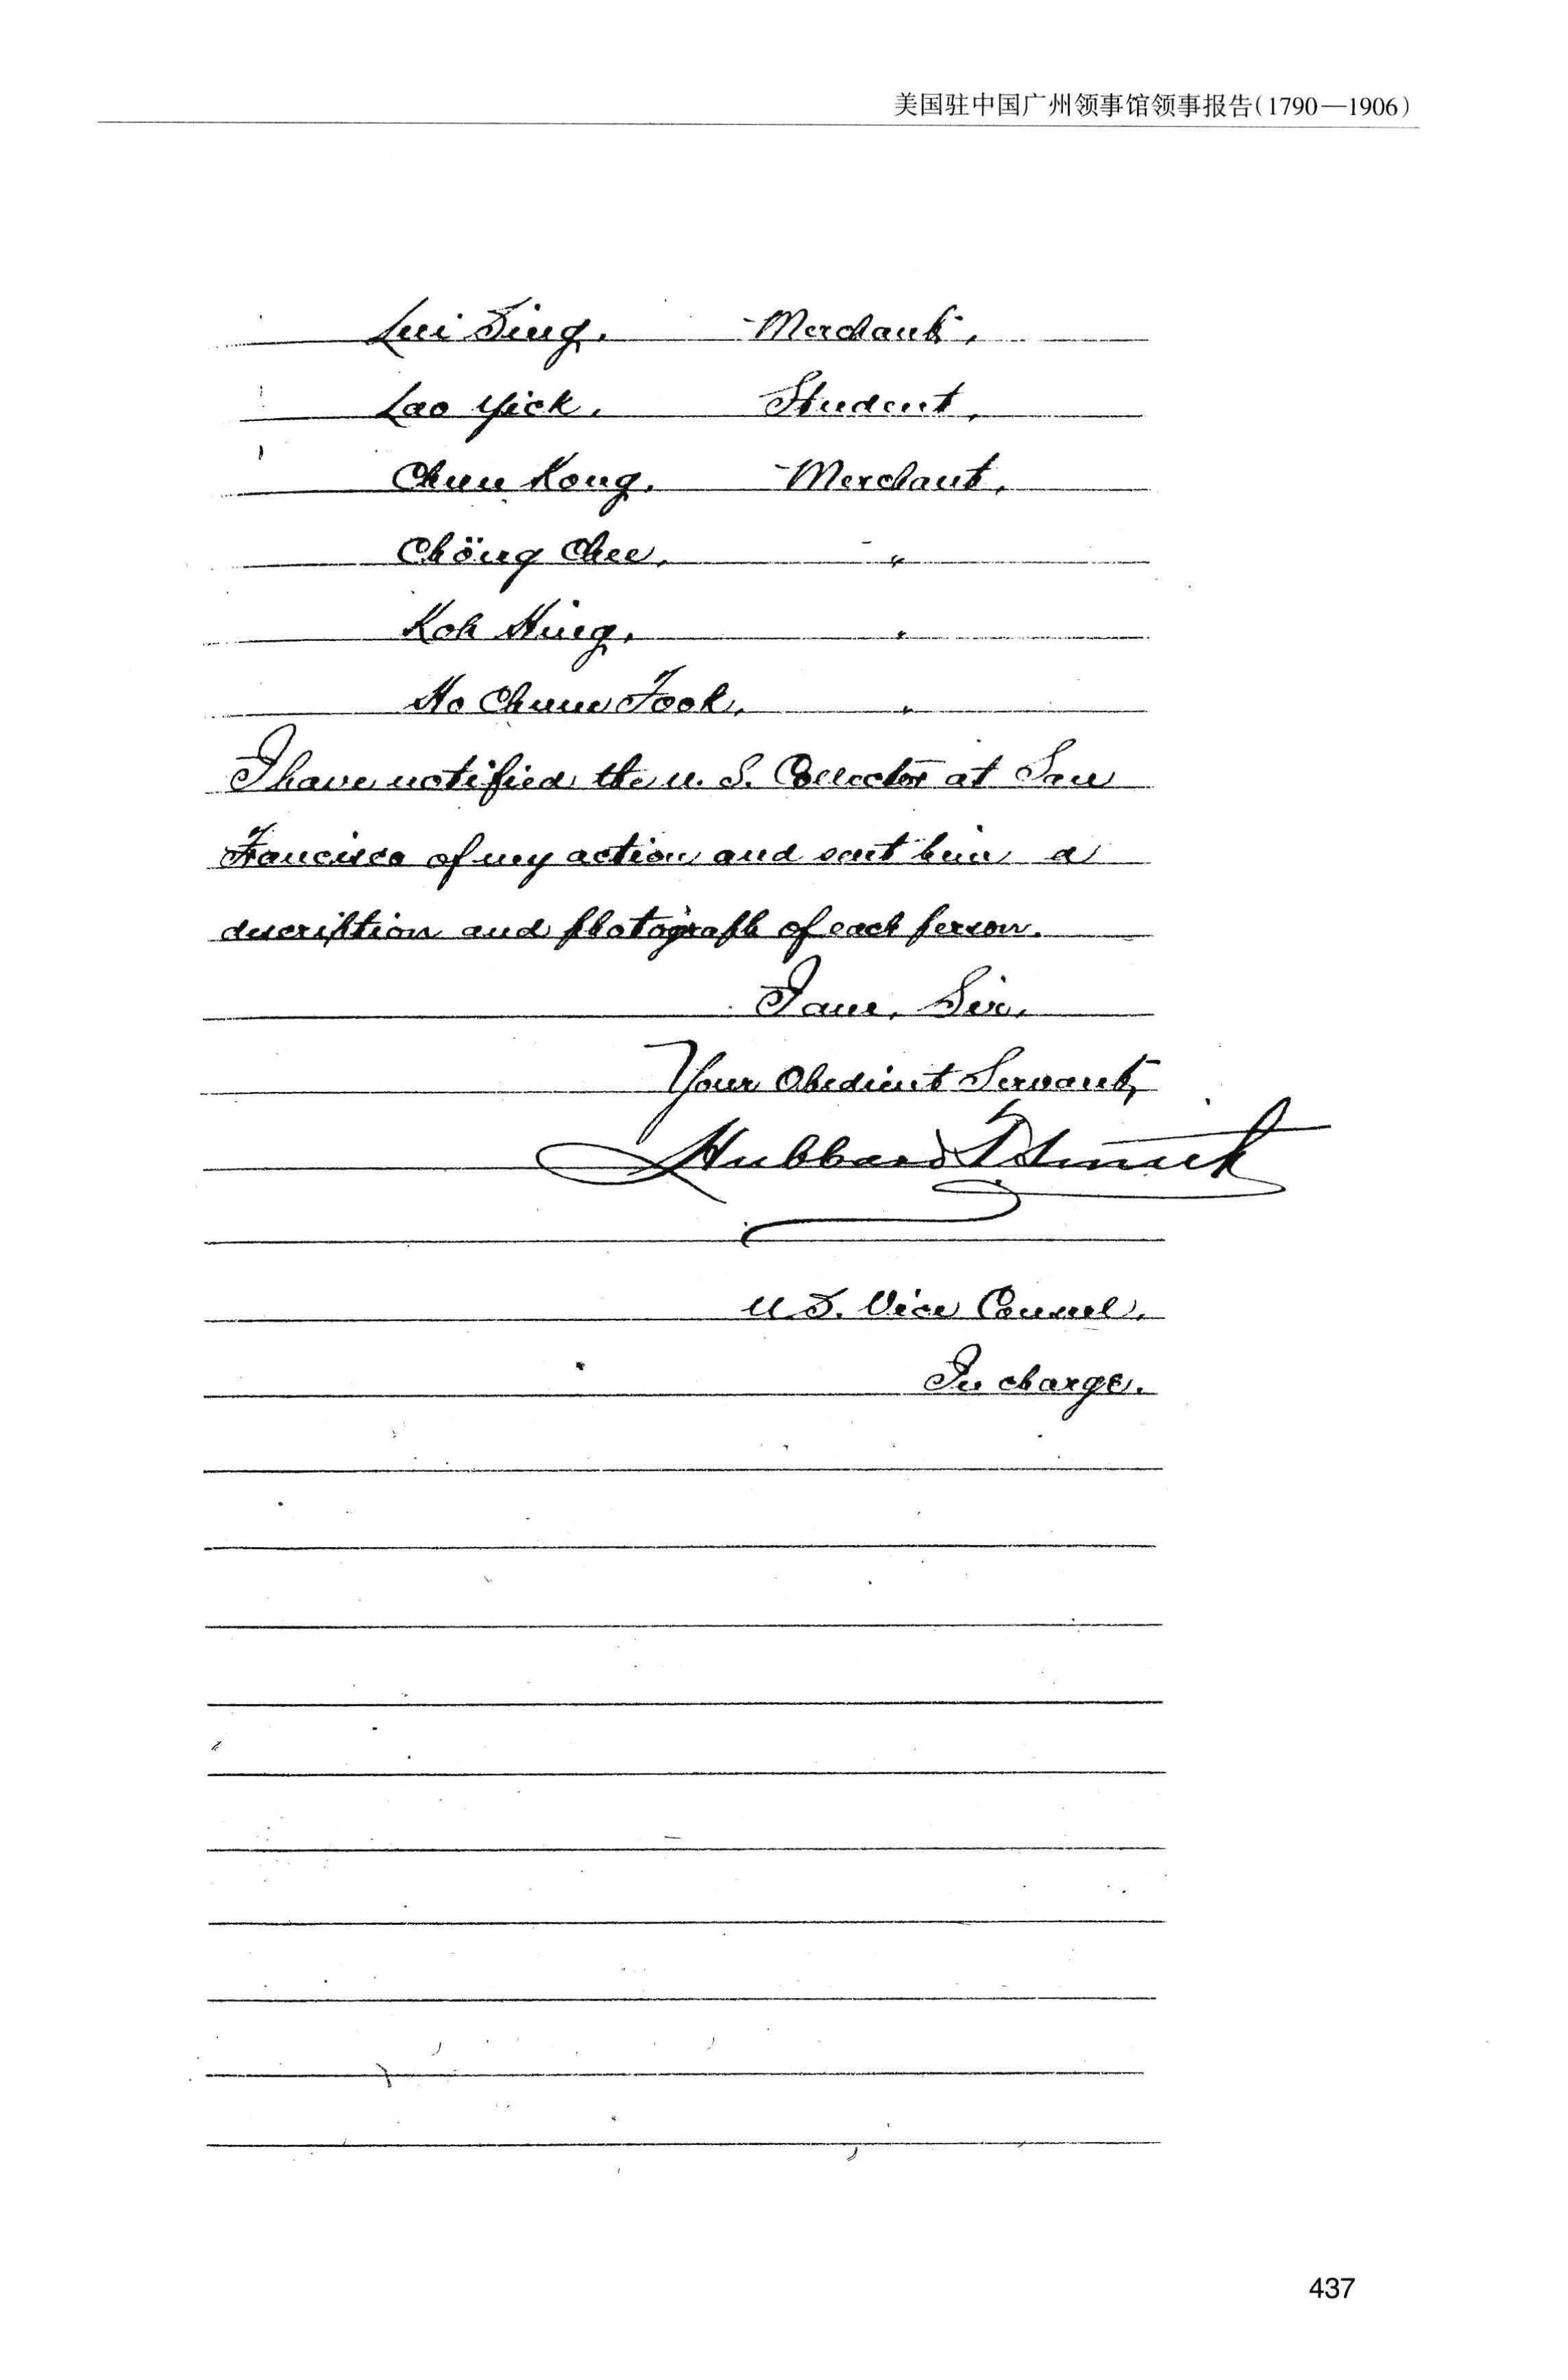 美国驻中国广州领事馆领事报告(1790—1906)
Lui Sing, Merchant,
Lao Yick, Student,
Chun Kong, Merchant,
Chöng Chee, "
Koh Hing, "
Ho Chuen Fook, "
I have notified the U. S. Collector at San
Francisco of my action and sent him a
description and photograph of each person.
I am, Sir,
Your Obedient Servant,
Hubbard T. Smith
U. S. Vice Consul,
In charge.
437